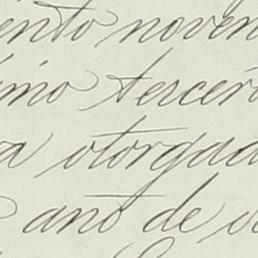 ento noven
imo tercer
a otorgad
año de